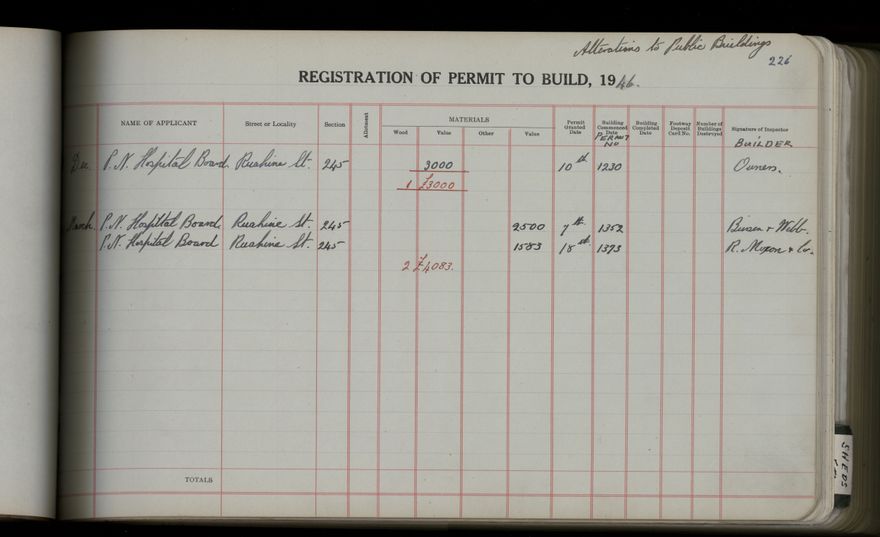 Alterations to Public Buildings
226
REGISTRATION OF PERMIT TO BUILD, 1946.
NAME OF APPLICANT
Street or Locality
Section
Allotment
MATERIALS
Wood
Value
Other
Value
Permit Granted Date
Building Commenced Date
PERMIT NO
Building Completed Date
Footway Deposit Card No.
Number of Buildings Destroyed
Signature of Inspector
BUILDER
Dec. P.N. Hospital Board Ruahine St. 245 3000 10th 1230 Owners.
1 £3000
March. P.N. Hospital Board Ruahine St. 245 2500 7th 1352 & Webb.
P.N. Hospital Board Ruahine St. 245 1583 18th 1373 R. & Co.
2 £4083.
TOTALS
SHEDS